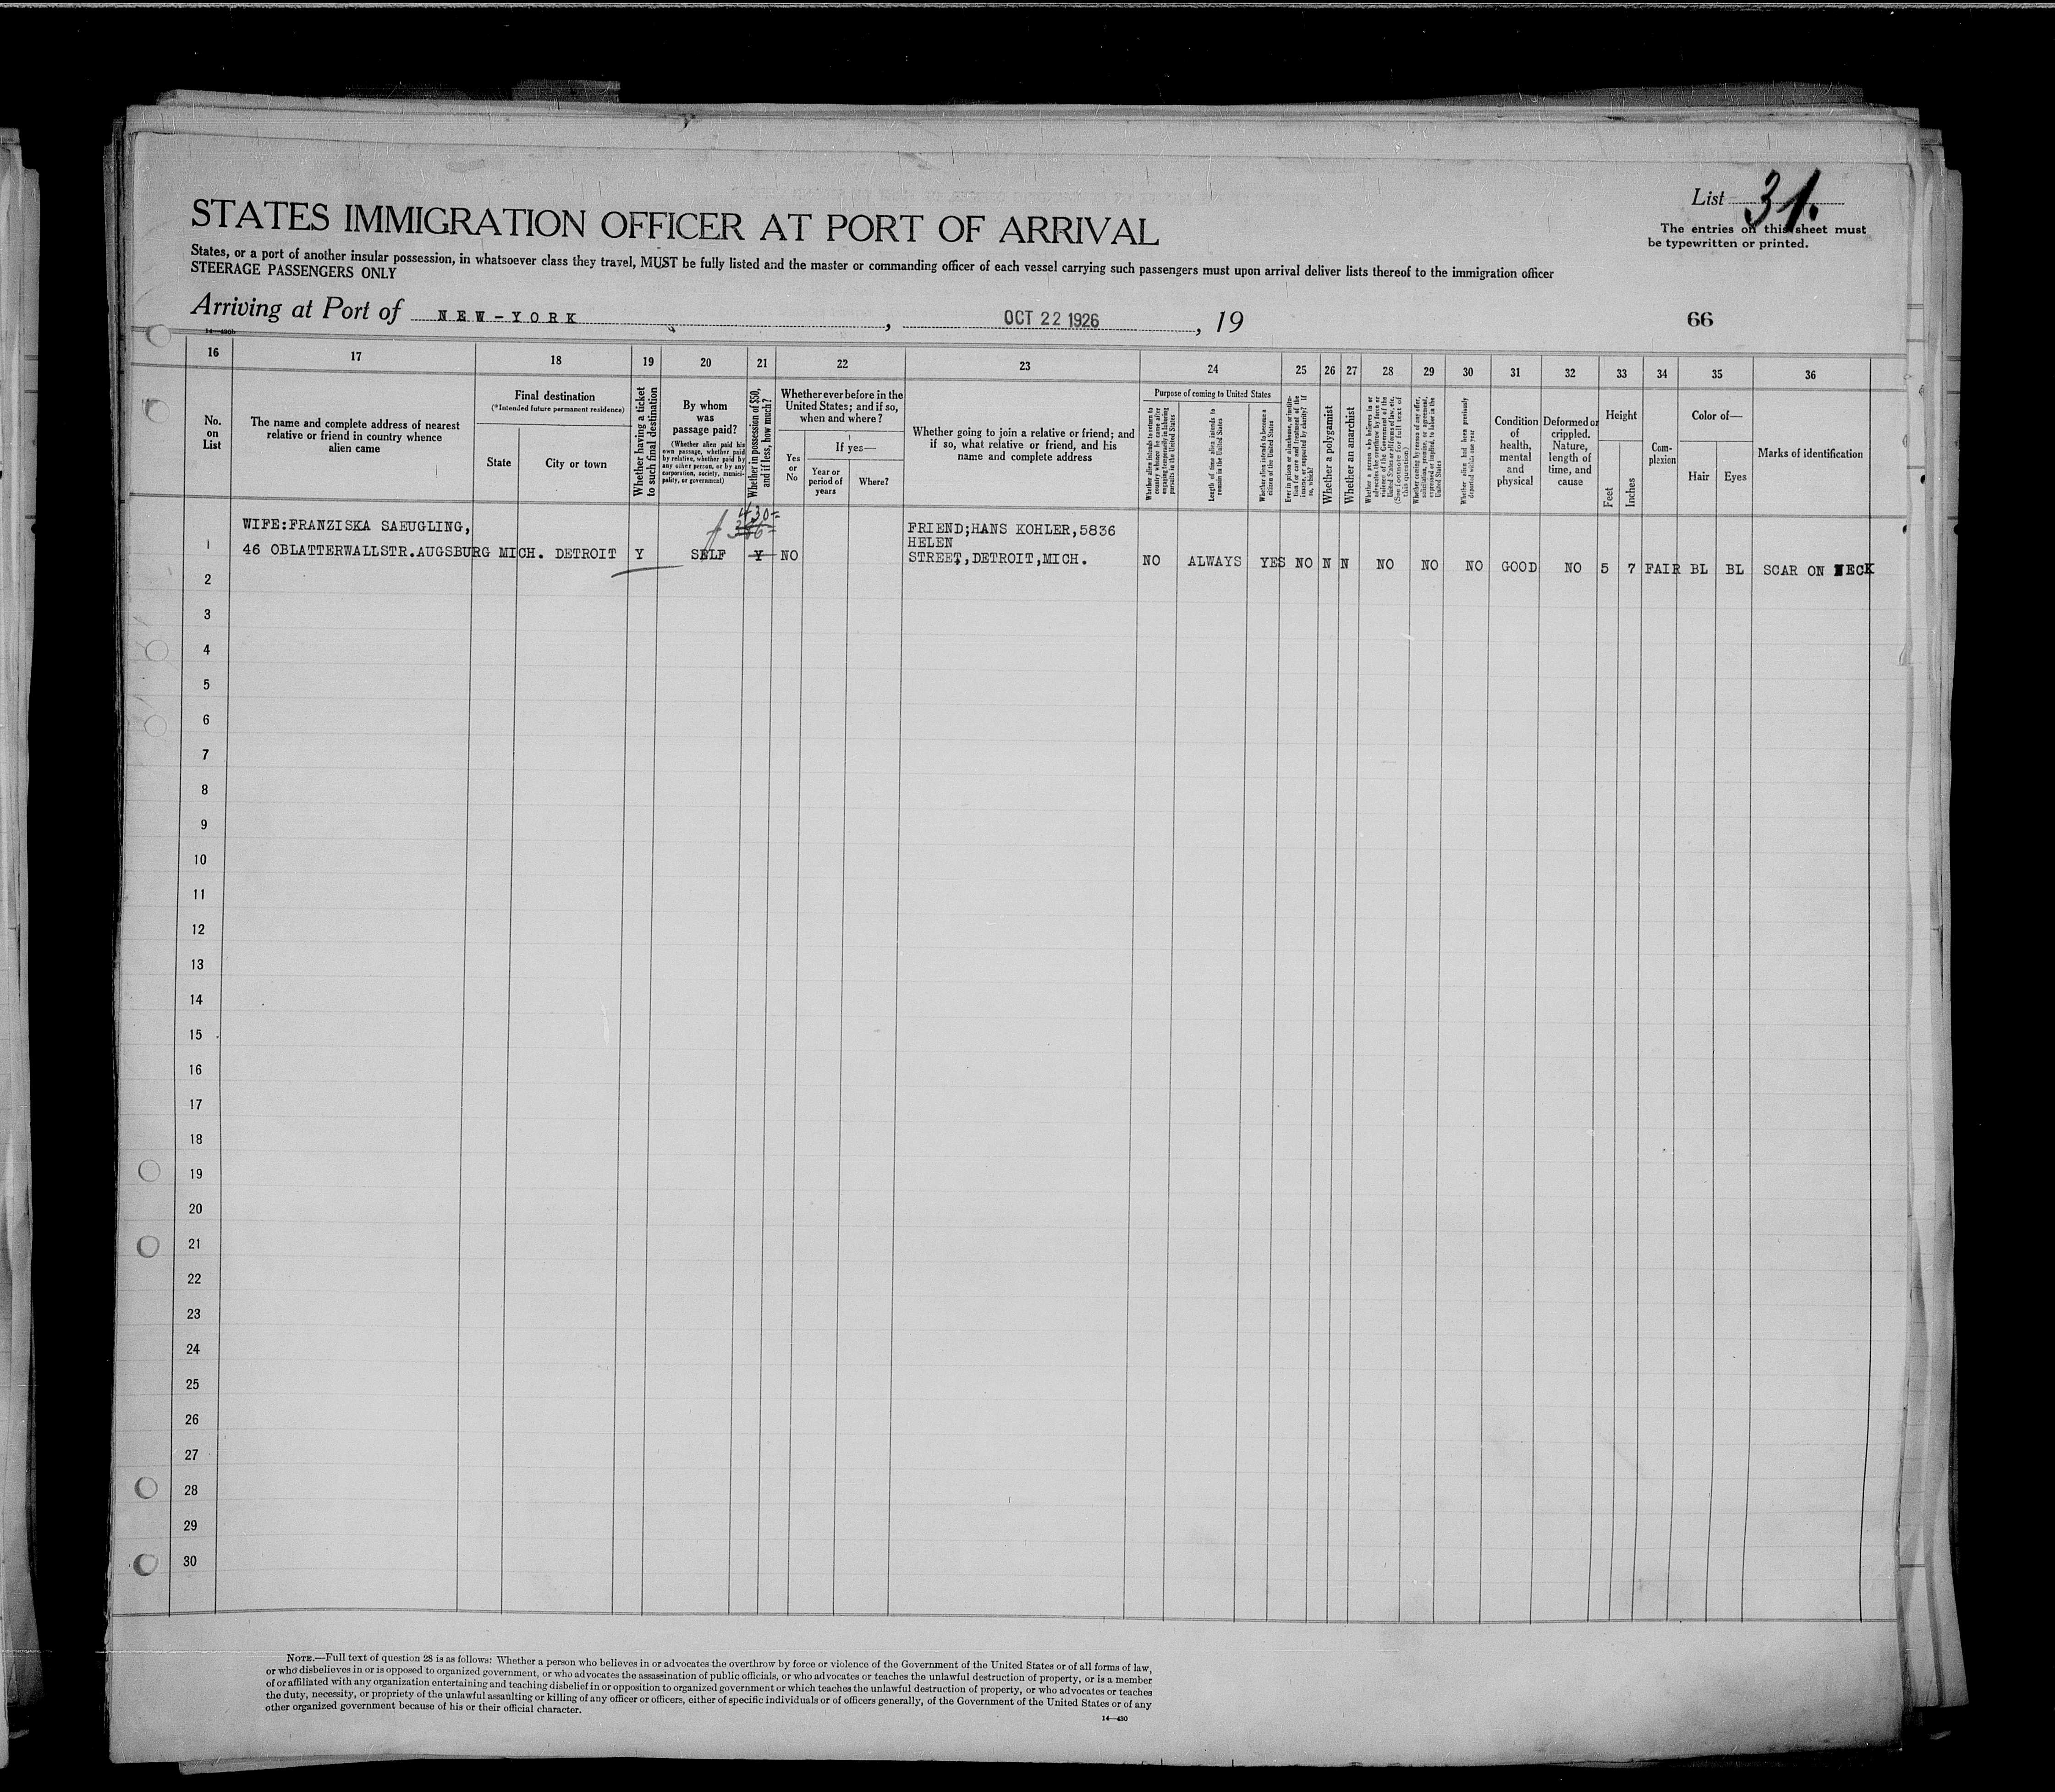 List 31.
The entries on this sheet must
be typewritten or printed.
STATES IMMIGRATION OFFICER AT PORT OF ARRIVAL
States, or a port of another insular possession, in whatsoever class they travel, MUST be fully listed and the master or commanding officer of each vessel carrying such passengers must upon arrival deliver lists thereof to the immigration officer
STEERAGE PASSENGERS ONLY
Arriving at Port of NEW-YORK, OCT 22 1926, 19
66
14—430b
16 17 18 19 20 21 22 23 24 25 26 27 28 29 30 31 32 33 34 35 36
No.
on
List
The name and complete address of nearest
relative or friend in country whence
alien came
Final destination
(*Intended future permanent residence)
State
City or town
Whether having a ticket
to such final destination
By whom
was
passage paid?
(Whether alien paid his
own passage, whether paid
by relative, whether paid by
any other person, or by any
corporation, society, munici-
pality, or government)
Whether in possession of $50,
and if less, how much?
Whether ever before in the
United States; and if so,
when and where?
Yes
or
No
If yes—
Year or
period of
years
Where?
Whether going to join a relative or friend; and
if so, what relative or friend, and his
name and complete address
Purpose of coming to United States
Whether alien intends to return to
country whence he came after
engaging temporarily in laboring
pursuits in the United States
Length of time alien intends to
remain in the United States
Whether alien intends to become a
citizen of the United States
Ever in prison or almshouse, or institu-
tion for care and treatment of the
insane, or supported by charity? If
so, which?
Whether a polygamist
Whether an anarchist
Whether a person who believes in or
advocates the overthrow by force or
violence of the Government of the
United States or all forms of law, etc.
(See footnote for full text of
this question)
Whether coming by reason of any offer,
solicitation, promise, or agreement,
expressed or implied, to labor in the
United States
Whether alien had been previously
deported within one year
Condition
of
health,
mental
and
physical
Deformed or
crippled.
Nature,
length of
time, and
cause
Height
Feet
Inches
Com-
plexion
Color of—
Hair
Eyes
Marks of identification
430-
WIFE:FRANZISKA SAEUGLING,
FRIEND;HANS KOHLER,5836
HELEN
1 46 OBLATTERWALLSTR.AUGSBURG MICH. DETROIT Y SELF Y NO STREET,DETROIT,MICH. NO ALWAYS YES NO N N NO NO NO GOOD NO 5 7 FAIR BL BL SCAR ON NECK
2
3
4
5
6
7
8
9
10
11
12
13
14
15
16
17
18
19
20
21
22
23
24
25
26
27
28
29
30
NOTE.—Full text of question 28 is as follows: Whether a person who believes in or advocates the overthrow by force or violence of the Government of the United States or of all forms of law,
or who disbelieves in or is opposed to organized government, or who advocates the assassination of public officials, or who advocates or teaches the unlawful destruction of property, or is a member
of or affiliated with any organization entertaining and teaching disbelief in or opposition to organized government or which teaches the unlawful destruction of property, or who advocates or teaches
the duty, necessity, or propriety of the unlawful assaulting or killing of any officer or officers, either of specific individuals or of officers generally, of the Government of the United States or of any
other organized government because of his or their official character.
14—430